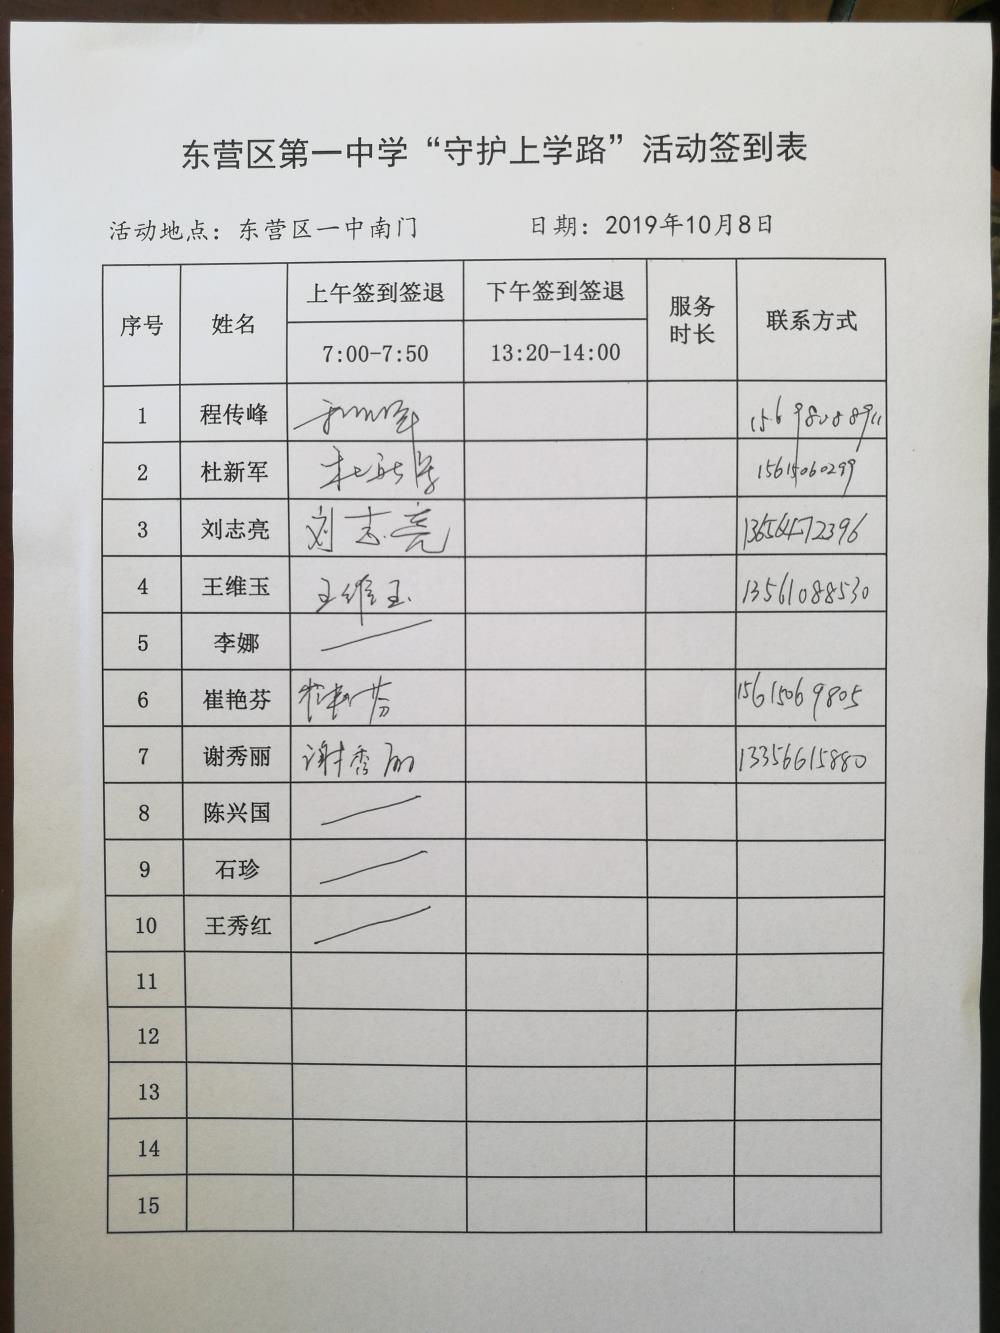 东营区第一中学“守护上学路”活动签到表
活动地点：东营区一中南门 日期：2019年10月8日
序号 姓名 上午签到签退 下午签到签退 服务时长 联系方式
7:00-7:50 13:20-14:00
1 程传峰
2 杜新军 杜新军 15615060299
3 刘志亮 刘志亮 13656472396
4 王维玉 王维玉 13561088530
5 李娜
6 崔艳芬 崔艳芬 15615069805
7 谢秀丽 谢秀丽 13356615880
8 陈兴国
9 石珍
10 王秀红
11
12
13
14
15